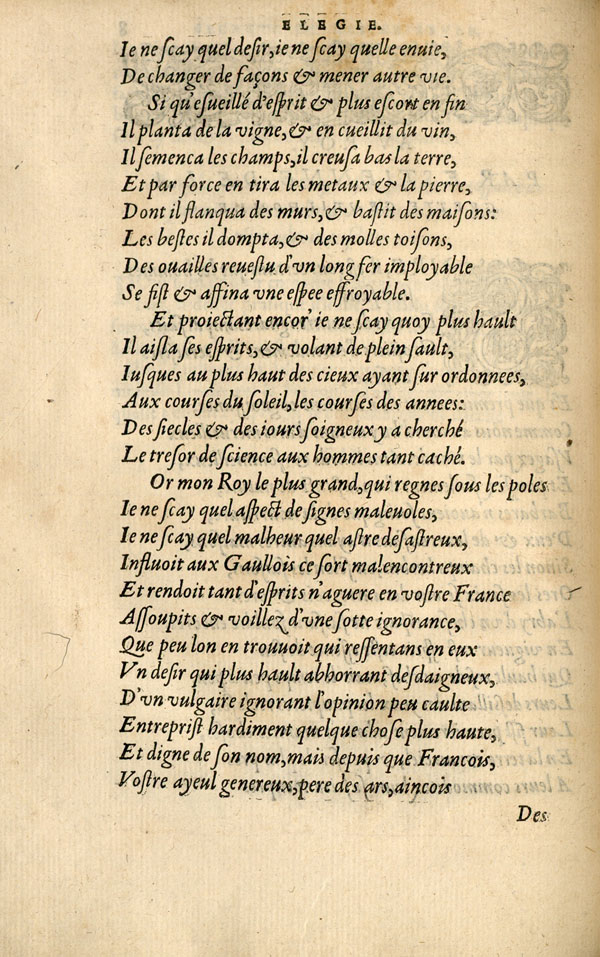 ELEGIE.
Ie ne scay quel desir, ie ne scay quelle enuie,
De changer de façons & mener autre vie.
Si qu'esueillé d'esprit & plus escort en fin
Il planta de la vigne, & en cueillit du vin,
Il semenca les champs, il creusa bas la terre,
Et par force en tira les metaux & la pierre,
Dont il flanqua des murs, & bastit des maisons:
Les bestes il dompta, & des molles toisons,
Des ouailles reuestu d'vn long fer imployable
Se fist & affina vne espee effroyable.
Et proiectant encor' ie ne scay quoy plus hault
Il aisla ses esprits, & volant de plein sault,
Iusques au plus haut des cieux ayant sur ordonnees,
Aux courses du soleil, les courses des annees:
Des siecles & des iours soigneux y a cherché
Le tresor de science aux hommes tant caché.
Or mon Roy le plus grand, qui regnes sous les poles
Ie ne scay quel aspect de signes maleuoles,
Ie ne scay quel malheur quel astre desastreux,
Influoit aux Gaullois ce sort malencontreux
Et rendoit tant d'esprits n'aguere en vostre France
Assoupits & voillez d'vne sotte ignorance,
Que peu lon en trouuoit qui ressentans en eux
Vn desir qui plus hault abhorrant desdaigneux,
D'vn vulgaire ignorant l'opinion peu caulte
Entreprist hardiment quelque chose plus haute,
Et digne de son nom, mais depuis que Francois,
Vostre ayeul genereux, pere des ars, aincois
Des